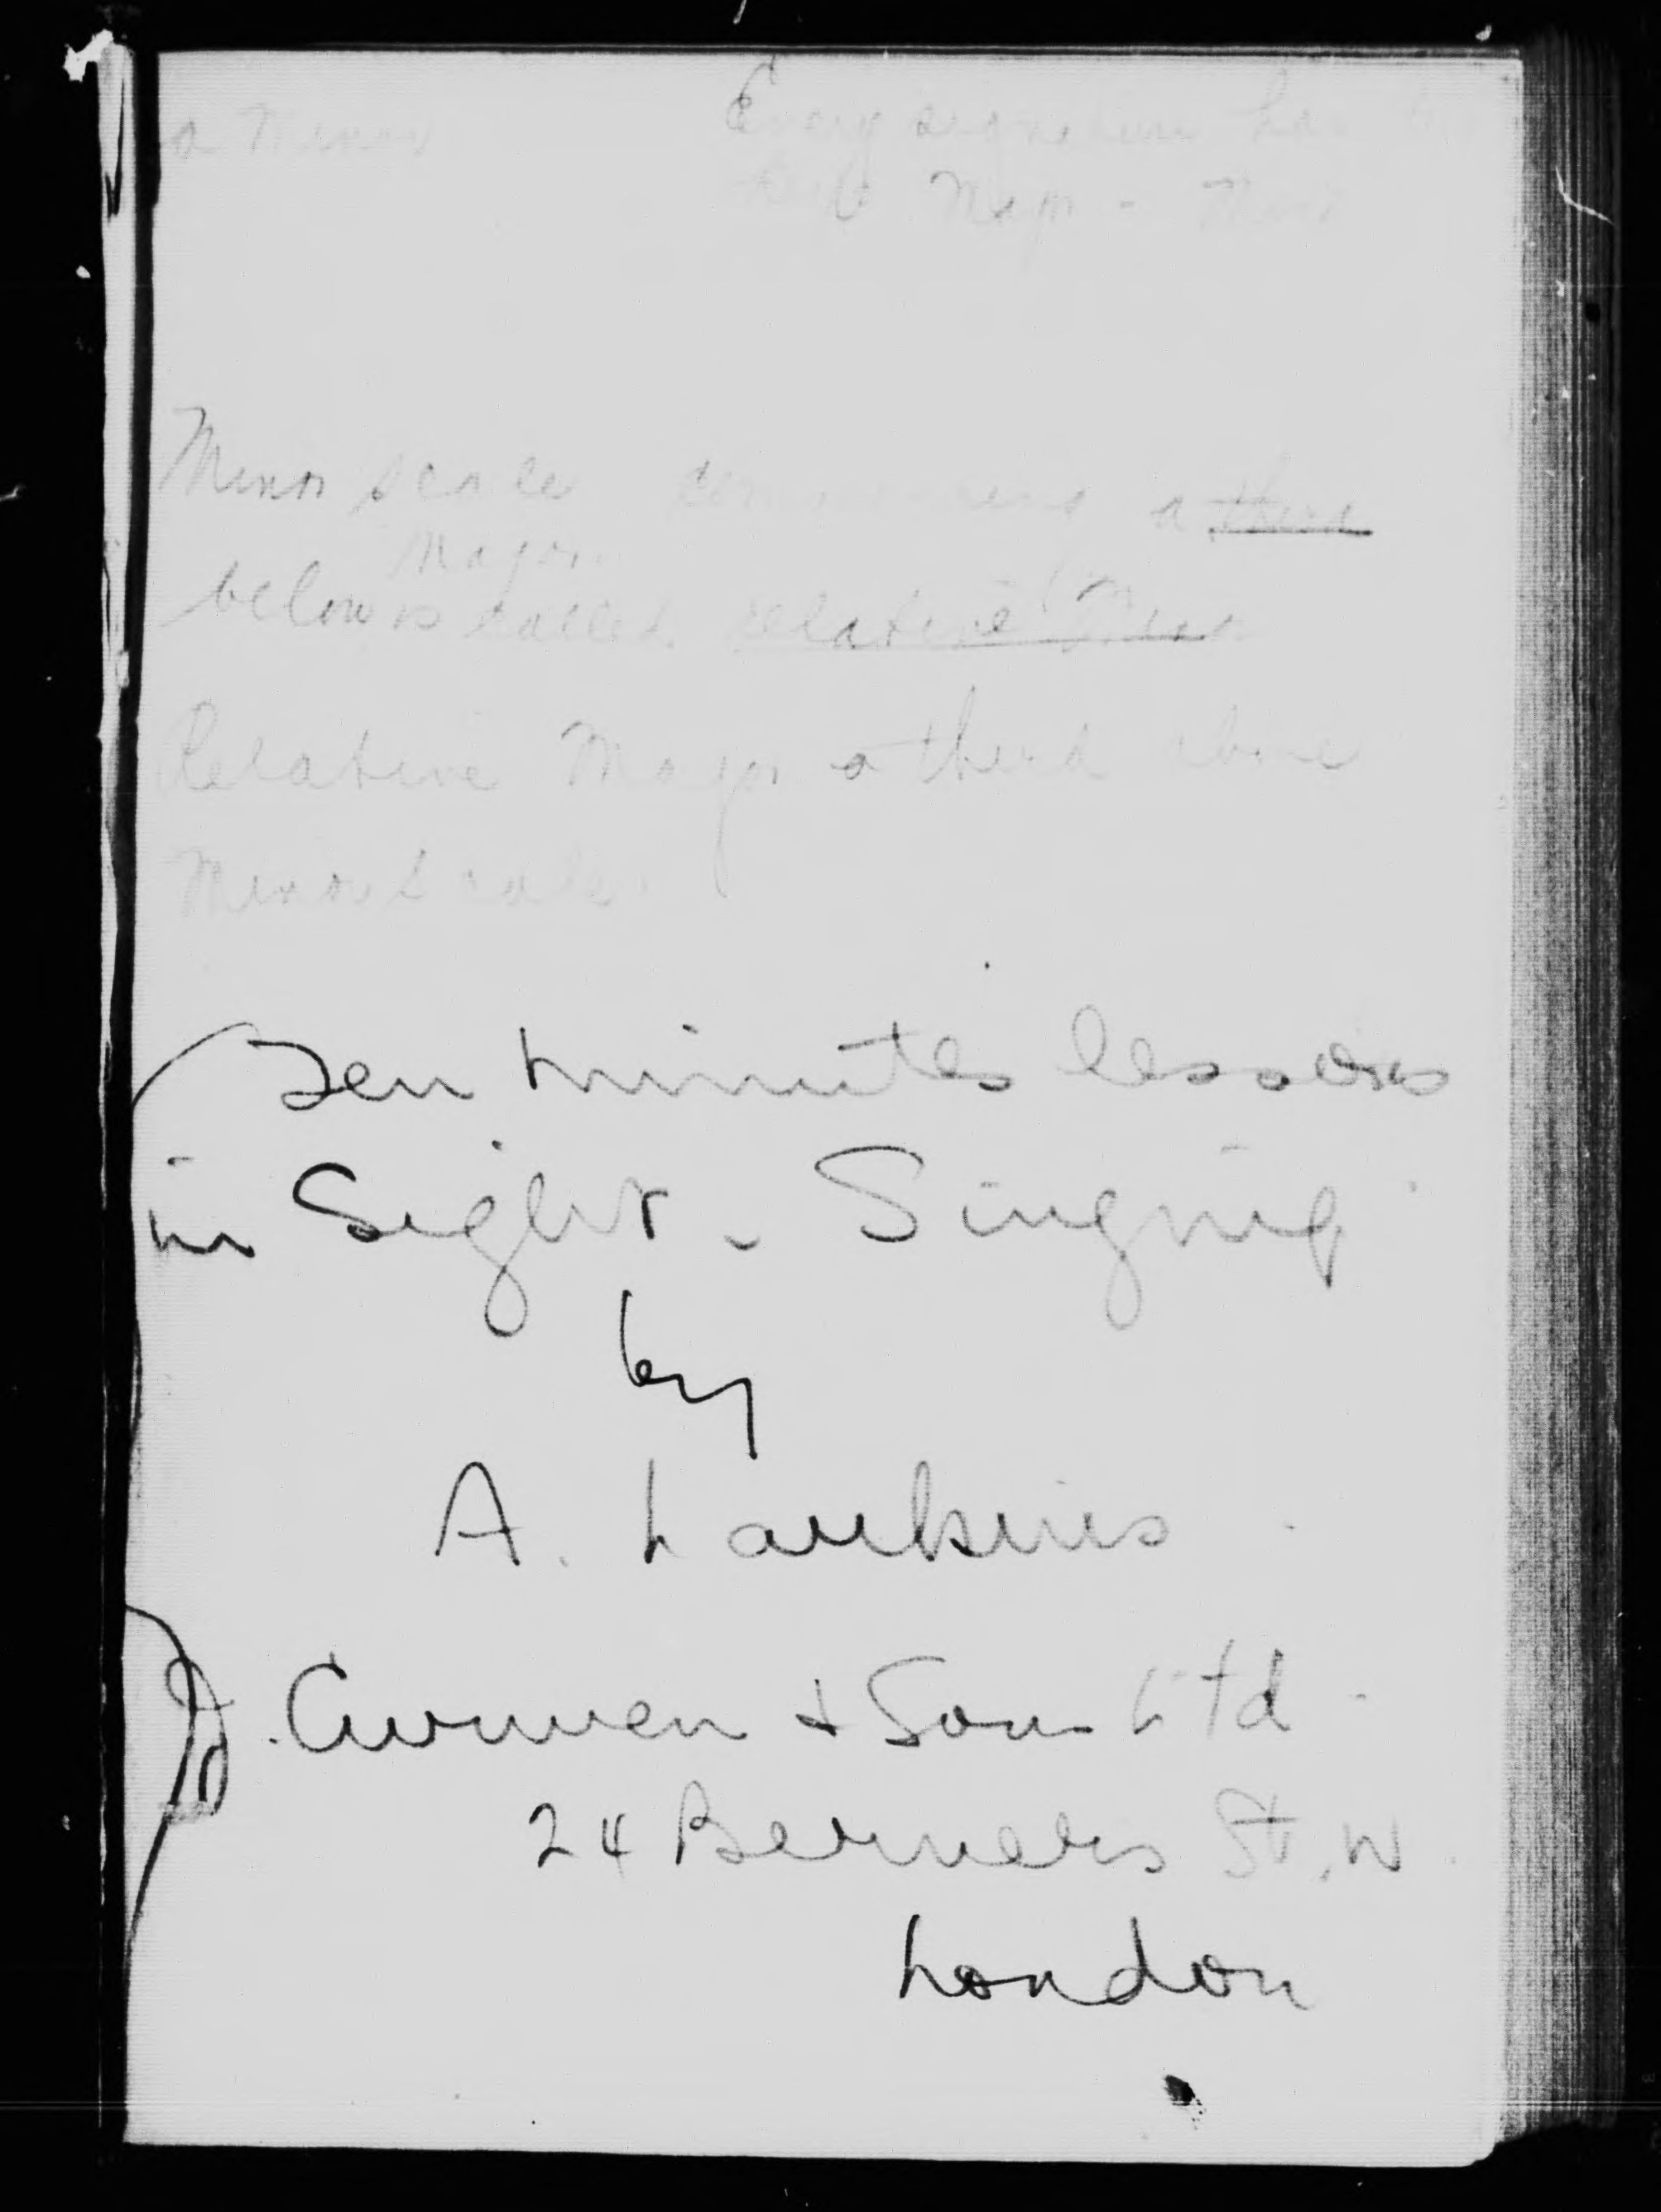 a Minor
Every signature has
Major - Minor
Minor scale commencing a third
Major
below is called relative Minor
Relative Major a third above
Minor Scale.
Ten minutes lessons
in Sight-Singing
by
A. Lawkins
J. Curwen & Sons Ltd
24 Berners St. W.
London